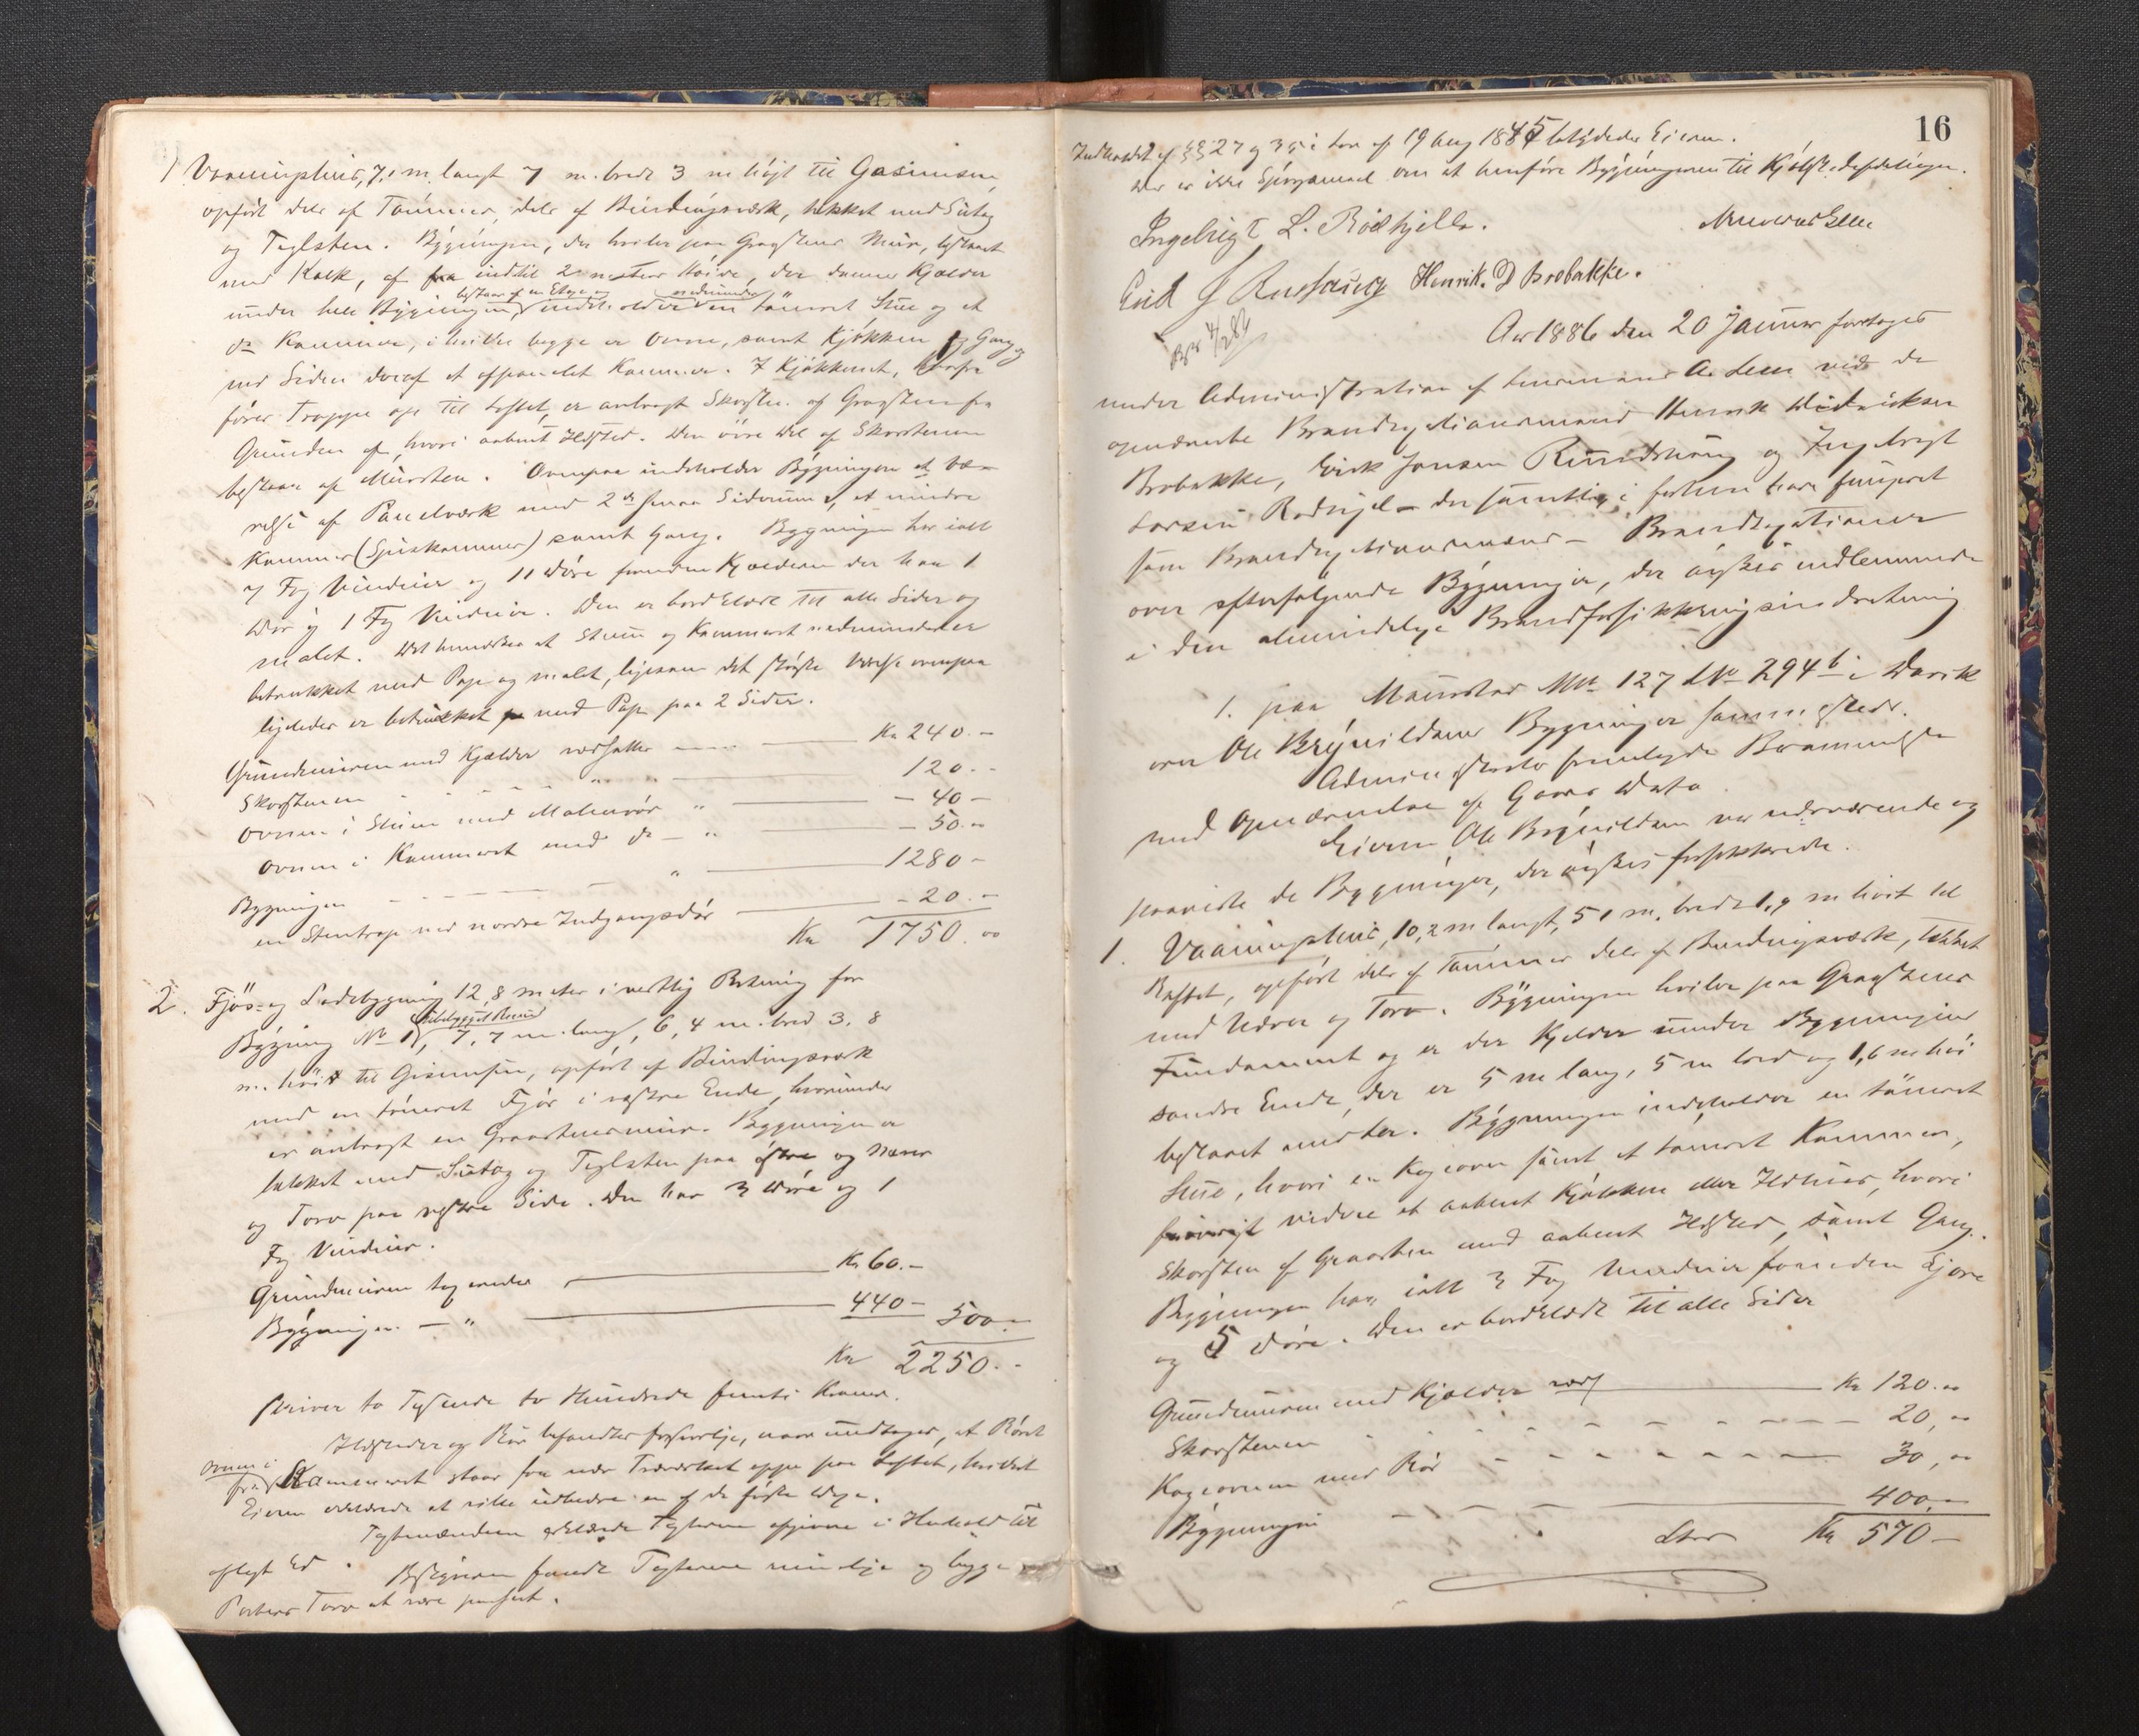 1 Vaaningshus, 7,1 m. langt 7 m. bredt 3 m høit til Gesimsen,
opført dels af Tømmer, dels af Bindingsværk, tækket med Sutag
og Teglsten. Bygningen, der hviler paa Graastens Mur, opsat
med Kalk, af indtil 2 meters Høide, der danner Kjælder
bestaar af en Etage og nedenunder
under hele Bygningen, indeholder en tømret Stue og et
do Kammer, i hvilke begge er Ovne, samt Kjøkken og Gang og
ved Siden deraf et afpanelet Kammer. I Kjøkkenet, hvorfra
fører Trappe op til Loftet, er anbragt Skorsten af Graasten fra
Grunden af, hvori aabent Ildsted. Den øvre Del af Skorstenen
bestaar af Mursten. Ovenpaa indeholder Bygningen et Væ-
relse af Panelværk med 2de smaa Siderum, et mindre
Kammer (Spiskammer) samt Gang. Bygningen har ialt
7 Fag Vinduer og 11 Døre foruden Kjælderen der har 1
Dør og 1 Fag Vinduer. Den er bordklædt til alle Sider og
malet. Det bemærkes at Stuen og Kammeret nedenunder er
betrukket med Pap og malet, ligesom det største Værelse ovenpaa
ligeledes er betrukket med Pap paa 2 Sider.
Grundmuren med Kjælder værdsattes Kr 240.-
Skorstenen " 120.-
Ovnen i Stuen med Malmrør " - 40 -
Ovnen i Kammeret med do - " - 50.-
Bygningen " 1280 -
en Stentrap ved nordre Indgangsdør - 20.-
Kr 1750.00
2. Fjös- og Ladebygning 12,8 meter i vestlig Retning for
ubebygget Rum
Bygning No 1, 7,7 m. lang, 6,4 m. bred 3,8
m. höi til Gesimsen, opført af Bindingsværk
med en tømret Fjös i vestre Ende, hvorunder
er anbragt en Graastensmur. Bygningen er
tækket med Sutag og Teglsten paa østre og Næver
og Torv paa vestre Side. Den har 3 Døre og 1
Fag Vinduer.
Grundmuren taxeredes Kr 60.-
Bygningen - " 440 - 500.-
Kr 2250.-
skriver to Tusende to Hundrede femti Kroner.
Ildsteder og Rør befandtes forsvarlige, naar undtages, at Røret
ovnen i
fra Kammeret staar for nær Træværket oppe paa Loftet, hvilket
Eieren erklærede at ville udbedre en af de første Dage.
Taxtmændene erklærede Taxterne afgivne i Henhold til
aflagt Ed. Bestyreren fandt Taxterne rimelige og begge
Parters Tarv at være paaseet.
16
Indholdet af §§ 27 og 35 i Lov af 19 Aug 1845 betydedes Eieren.
Der er ikke Spørgsmaal om at henføre Bygningerne til Kjøbstadafdelingen.
Ingebrigt L. Rödhjell.
Erik J Rustaug Henrik. D Brobakke.
Aar 1886 den 20 Januar foretoges
under Administration af Lensmand A. Lem ved de
opnævnte Brandtaxtationsmænd Henrik Didriksen
Brobakke, Erik Jansen og Ingebrigt
Larsen Rødhjel - der samtlige i forhen have fungeret
som Brandtaxtationsmænd - Brandtaxtationer
over efterfølgende Bygninger, der ønskes indlemmede
i den almindelige Brandforsikkringsindretning
1. paa Mo No 127 LNo 294 b i Davik
over Ole Brynildsens Bygninger sammesteds.
Administrator fremlagde
med Opnævnelse af Gaars Dato.
Eieren Ole Brynildsen var nærværende og
paaviste de Bygninger, der ønskes forsikkrede.
1. Vaaningshus, 10,2 m langt, 5,1 m. bredt 1,9 m høit til
Raftet, opført dels af Tømmer dels af Bindingsværk, tækket
med Næver og Torv. Bygningen hviler paa Graastens
Fundament og er der Kjelder under Bygningens
søndre Ende, der er 5 m lang, 5 m bred og 1,6 m høi
Bygningen indeholder en tømret
Stue, hvori en Kogeovn samt et tømret Kammer,
forøvrigt videre et aabent Kjøkken eller Ildhus, hvori
Skorsten af Graasten med aabent Ildsted, samt Gang.
Bygningen har ialt 3 Fag Vinduer foruden Ljore
og 5 Døre. Den er bordklædt til alle Sider
Grundmuren med Kjælder værds Kr 120.00
Skorstenen 20,00
Kogeovnen med Rør 30,00
Bygningen 400.-
Kr 570 -